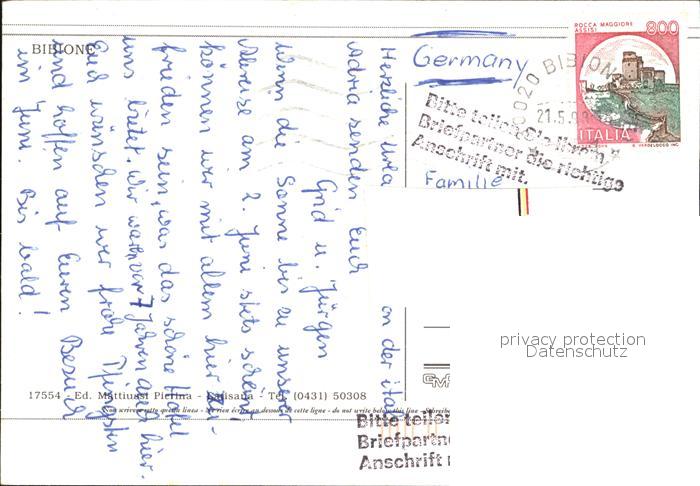 BIBIONE
Germany
Familie
ROCCA MAGGIORE
ASSISI
800
ITALIA
BIBIONE
21.5.9
Bitte teilen Sie Ihrem
Briefpartner die richtige
Anschrift mit.
Herzliche Urla
an der ita
Adria senden Euch
Grid u. Jürgen
Wenn die Sonne bis zu unserer
Abreise am 2. Juni stets scheint
können wir mit allem hier zu-
frieden sein, was das schöne Hotel
uns bietet. Wir waren vor 7 Jahren auch hier.
Euch wünschen wir frohe Pfingsten
und hoffen auf Euren Besuch
im Juni. Bis bald!
17554 - Ed. Mattiussi Pierina - Latisana - Tel. (0431) 50308
Non scrivere sotto questa linea - Ne rien écrire au dessous de cette ligne - do not write below this line
privacy protection
Datenschutz
Bitte teilen
Briefpartn
Anschrift